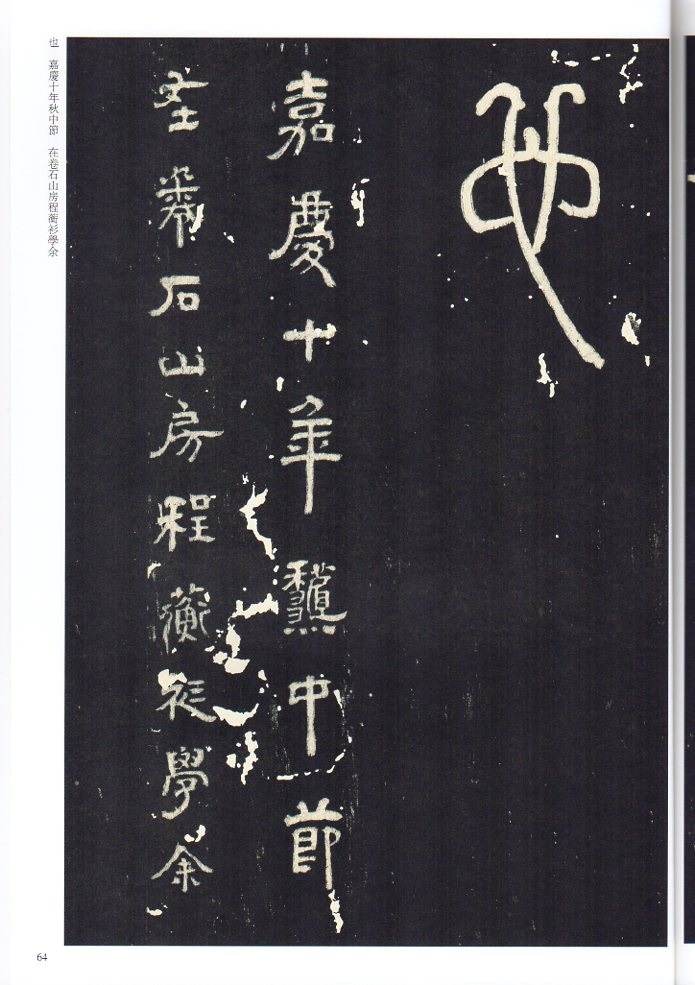 也
嘉慶十年龝中節
在卷石山房程蘅衫學余
也 嘉慶十年秋中節 在卷石山房程蘅衫學余
64